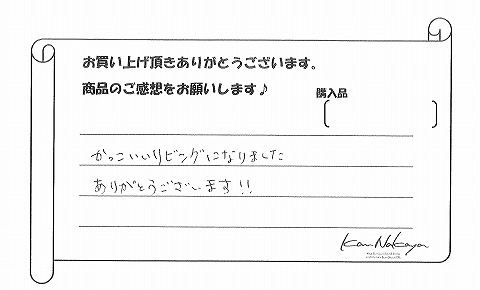 お買い上げ頂きありがとうございます。
商品のご感想をお願いします♪
購入品
かっこいいリビングになりました
ありがとうございます!!
Kan Nakaya